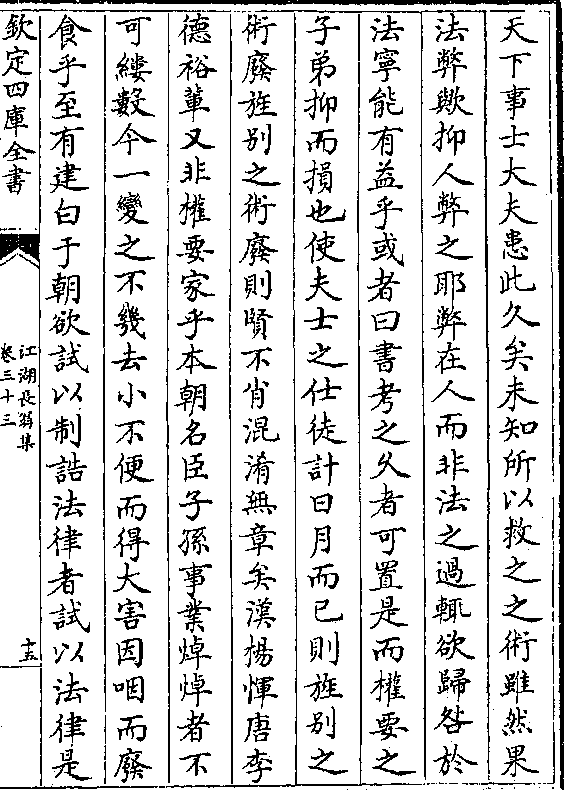 天下事士大夫患此久矣未知所以救之之術雖然果
法弊歟抑人弊之耶弊在人而非法之過輒欲歸咎於
法寧能有益乎或者曰書考之久者可置是而權要之
子弟抑而損也使夫士之仕徒計日月而已則旌别之
術廢旌别之術廢則賢不肖混淆無章矣漢楊惲唐李
德裕輩又非權要家乎本朝名臣子孫事業焯焯者不
可縷數今一變之不幾去小不便而得大害因咽而廢
食乎至有建白于朝欲試以制誥法律者試以法律是
欽定四庫全書
江湖長翁集
卷三十三
十五